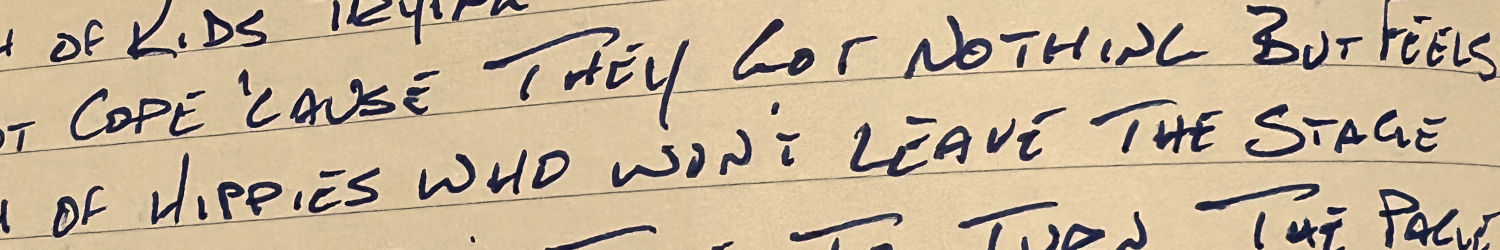 OF KIDS
COPE 'CAUSE THEY GOT NOTHING BUT FEELS
OF HIPPIES WHO WON'T LEAVE THE STAGE
TO TURN THE PAGE